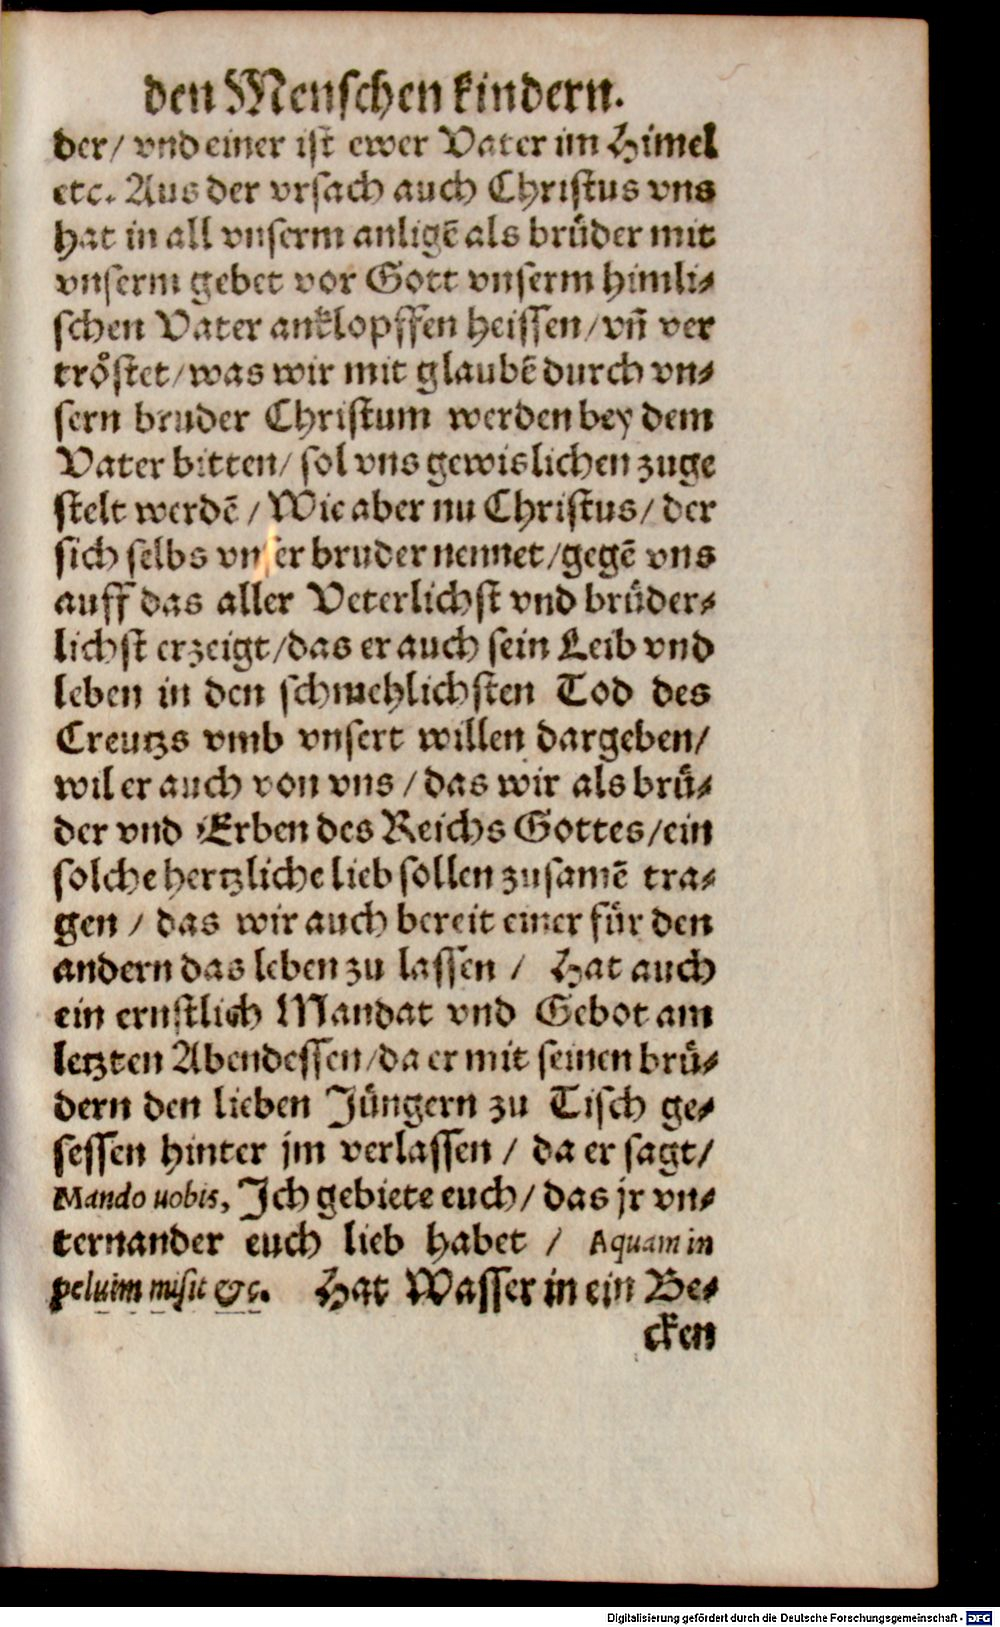 den Menschen kindern.
der/ vnd einer ist ewer Vater im Himel
etc. Aus der vrsach auch Christus vns
hat in all vnserm anligē als brüder mit
vnserm gebet vor Gott vnserm himli⸗
schen Vater anklopffen heissen/ vñ ver
tröstet/ was wir mit glaubē durch vn⸗
sern bruder Christum werden bey dem
Vater bitten/ sol vns gewislichen zuge
stelt werdē / Wie aber nu Christus/ der
sich selbs vnser bruder nennet/ gegē vns
auff das aller Veterlichst vnd brüder⸗
lichst erzeigt/ das er auch sein Leib vnd
leben in den schmehlichsten Tod des
Creutzs vmb vnsert willen dargeben/
wil er auch von vns / das wir als brü⸗
der vnd Erben des Reichs Gottes/ ein
solche hertzliche lieb sollen zusamē tra⸗
gen / das wir auch bereit einer für den
andern das leben zu lassen / Hat auch
ein ernstlich Mandat vnd Gebot am
letzten Abendessen/ da er mit seinen brü⸗
dern den lieben Jüngern zu Tisch ge⸗
sessen hinter jm verlassen / da er sagt/
Mando uobis, Ich gebiete euch/ das jr vn⸗
ternander euch lieb habet / Aquam in
peluim misit &c. Hat Wasser in ein Be⸗
cken
Digitalisierung gefördert durch die Deutsche Forschungsgemeinschaft - DFG